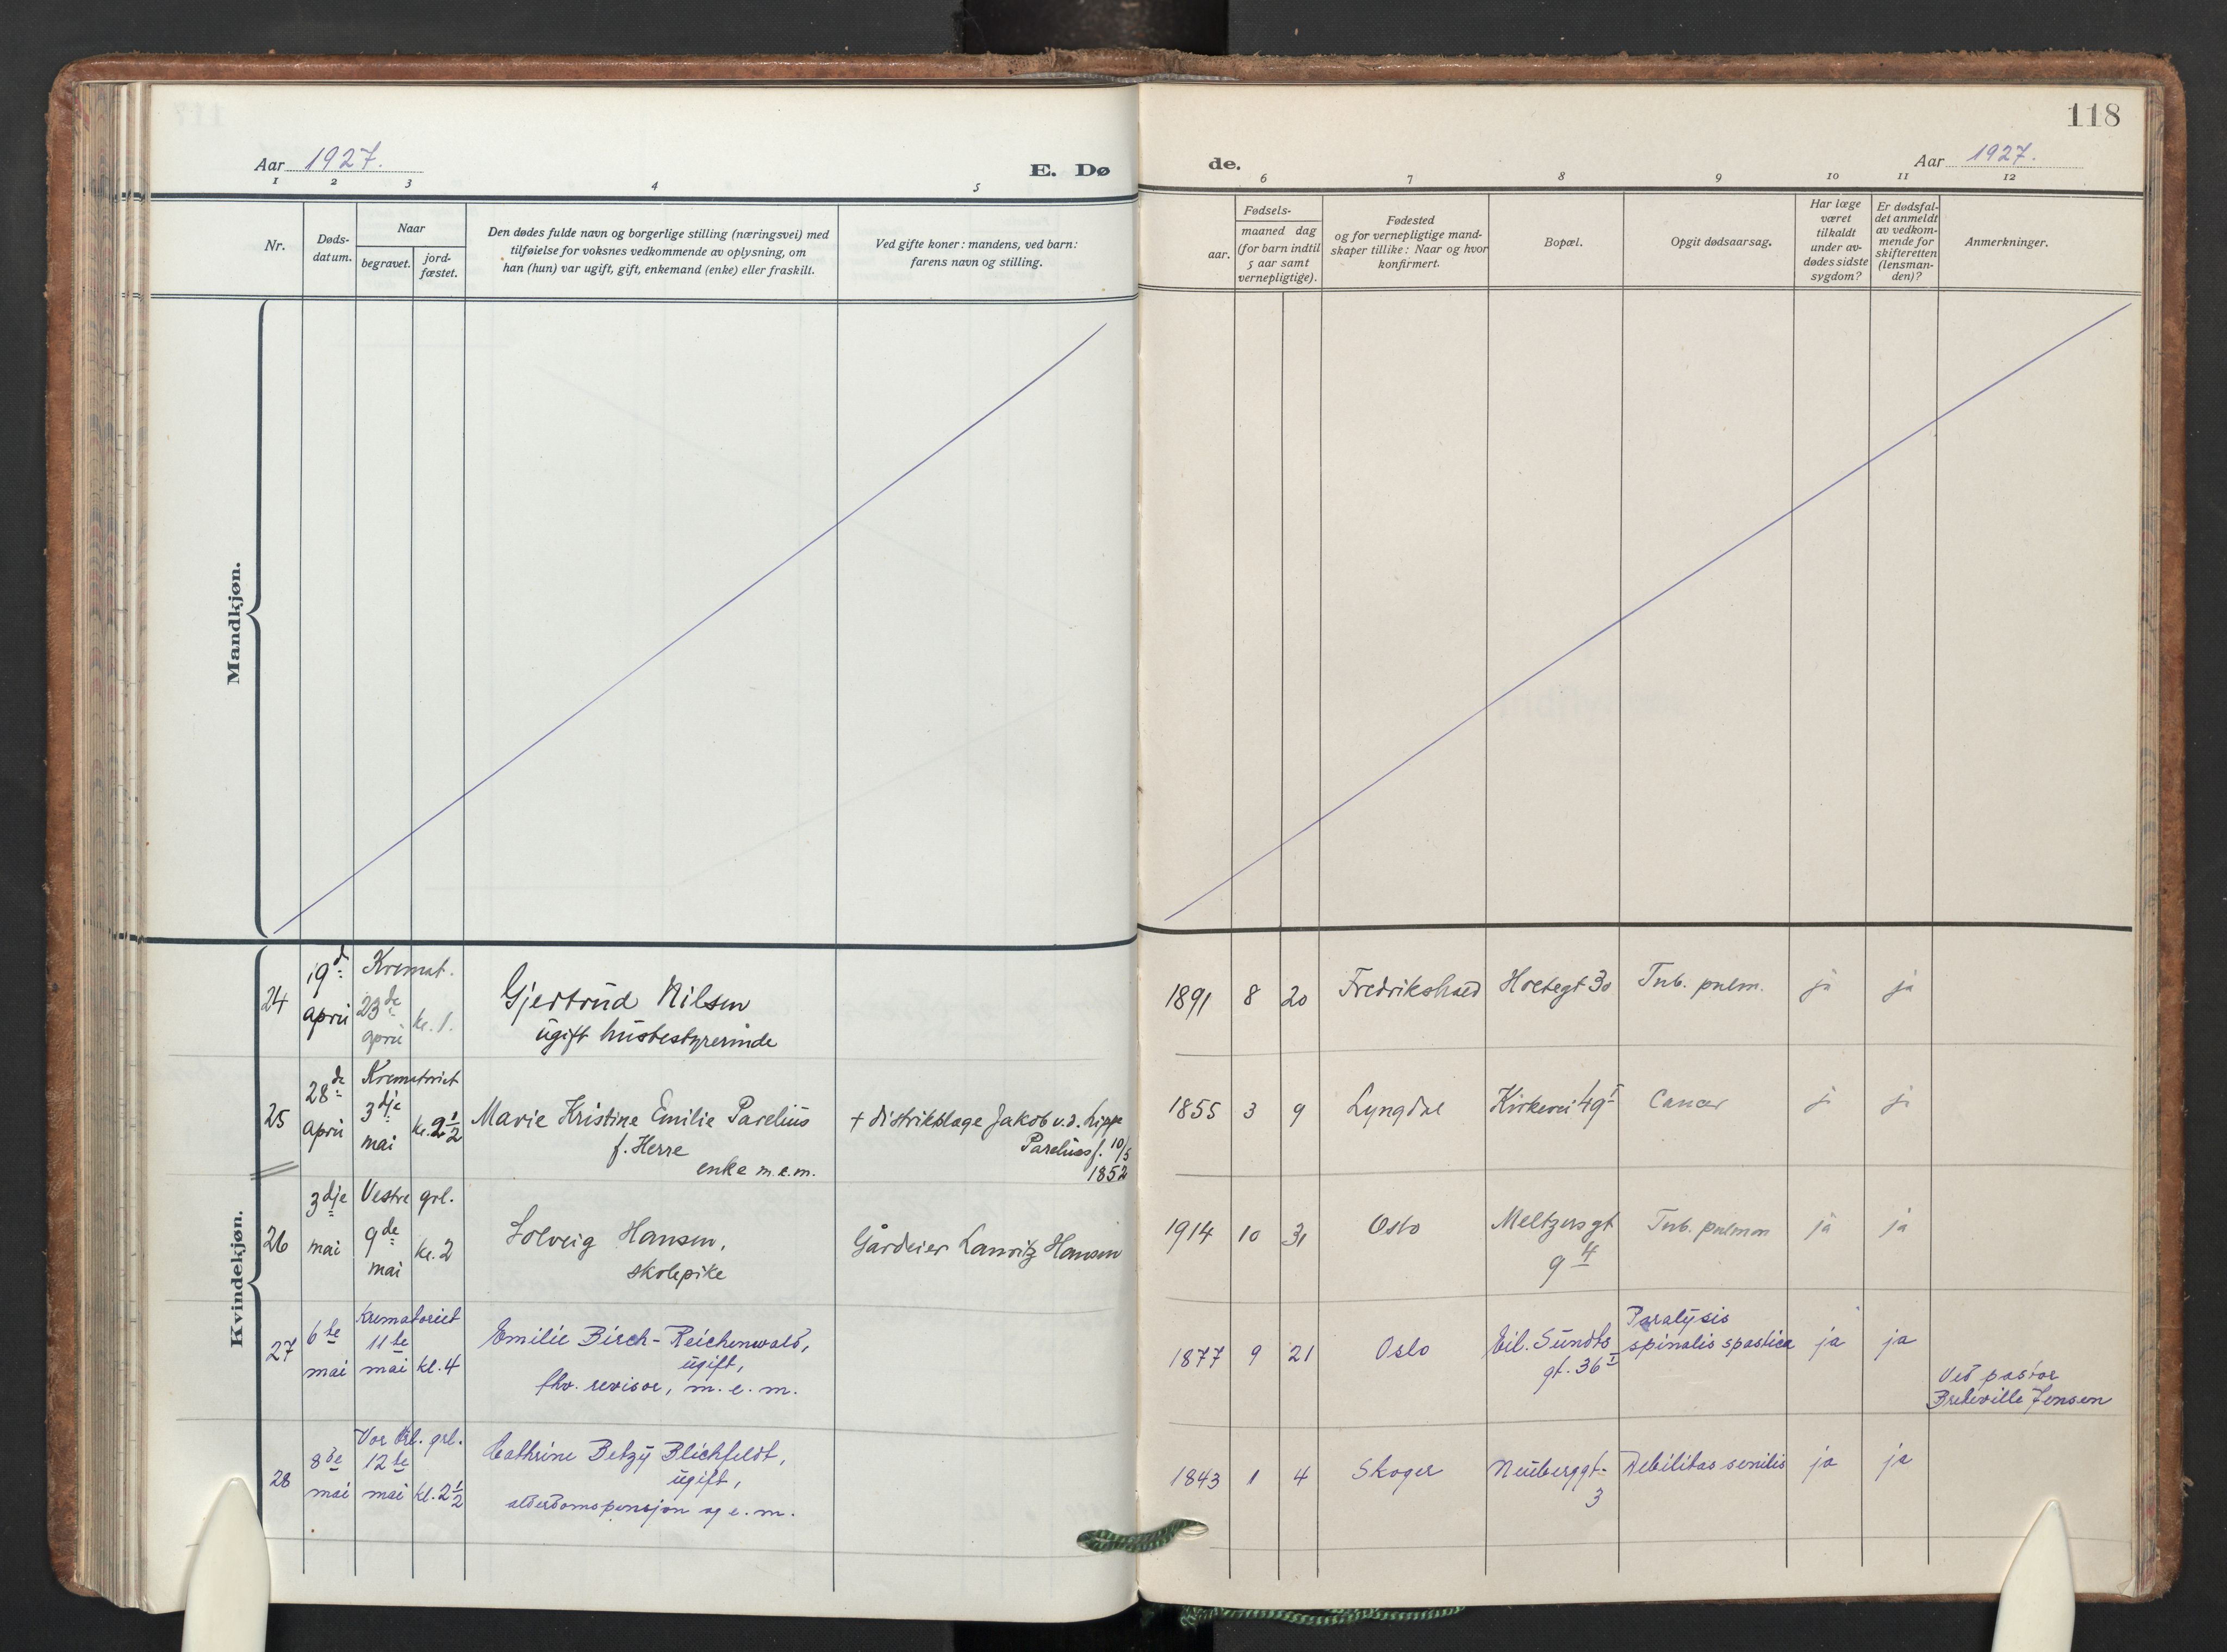 118
Aar 1927.
E. Dø
de.
Aar 1927.
1 2 3 4 5 6 7 8 9 10 11 12
Nr.
Døds-
datum.
Naar
begravet.
jord-
fæstet.
Den dødes fulde navn og borgerlige stilling (næringsvei) med
tilføielse for voksnes vedkommende av oplysning, om
han (hun) var ugift, gift, enkemand (enke) eller fraskilt.
Ved gifte koner: mandens, ved barn:
farens navn og stilling.
Fødsels-
aar.
maaned dag
(for barn indtil
5 aar samt
vernepligtige).
Fødested
og for vernepligtige mand-
skaper tillike: Naar og hvor
konfirmert.
Bopæl.
Opgit dødsaarsag.
Har læge
været
tilkaldt
under av-
dødes sidste
sygdom?
Er dødsfal-
det anmeldt
av vedkom-
mende for
skifteretten
(lensman-
den)?
Anmerkninger.
Mandkjøn.
Kvindekjøn.
24
19d
april
Kremat.
23de
april
kl. 1.
Gjertrud Nilsen
ugift husbestyrerinde
1891 8 20
Fredrikshald
Tub. pulm.
ja ja
25
28de
april
Krematoriet
3dje
mai
kl. 2½
Marie Kristine Emilie Parelius
f. Herre
enke m.e.m.
+ distriktslæge Jakob v.d. Lippe
Parelius f. 10/5
1852
1855 3 9
Lyngdal
Kirkevei 49 I
Cancer
ja ja
26
3dje
mai
Vestre grl.
9de
mai
kl. 2
Solveig Hansen,
skolepike
Gårdeier Lauritz Hansen
1914 10 31
Oslo
Meltzersgt
9 4
Tub. pulmon
ja ja
27
6te
mai
Krematoriet
11te
mai
kl. 4
Emilie Birch-Reichenwald,
ugift,
fhv. revisor, m. e. m.
1877 9 21
Oslo
Eil. Sundts
gt. 36 I
Paralysis
spinalis spastica
ja ja
28
8de
mai
Vor Frl. grl.
12te
mai
kl. 2½
Cathrine Betzy Blichfeldt,
ugift,
alderdomspensjon og e. m.
1843 1 4
Skoger
Neuberggt.
3
Debilitas senilis
ja ja
Ved pastor
Bretteville Jensen